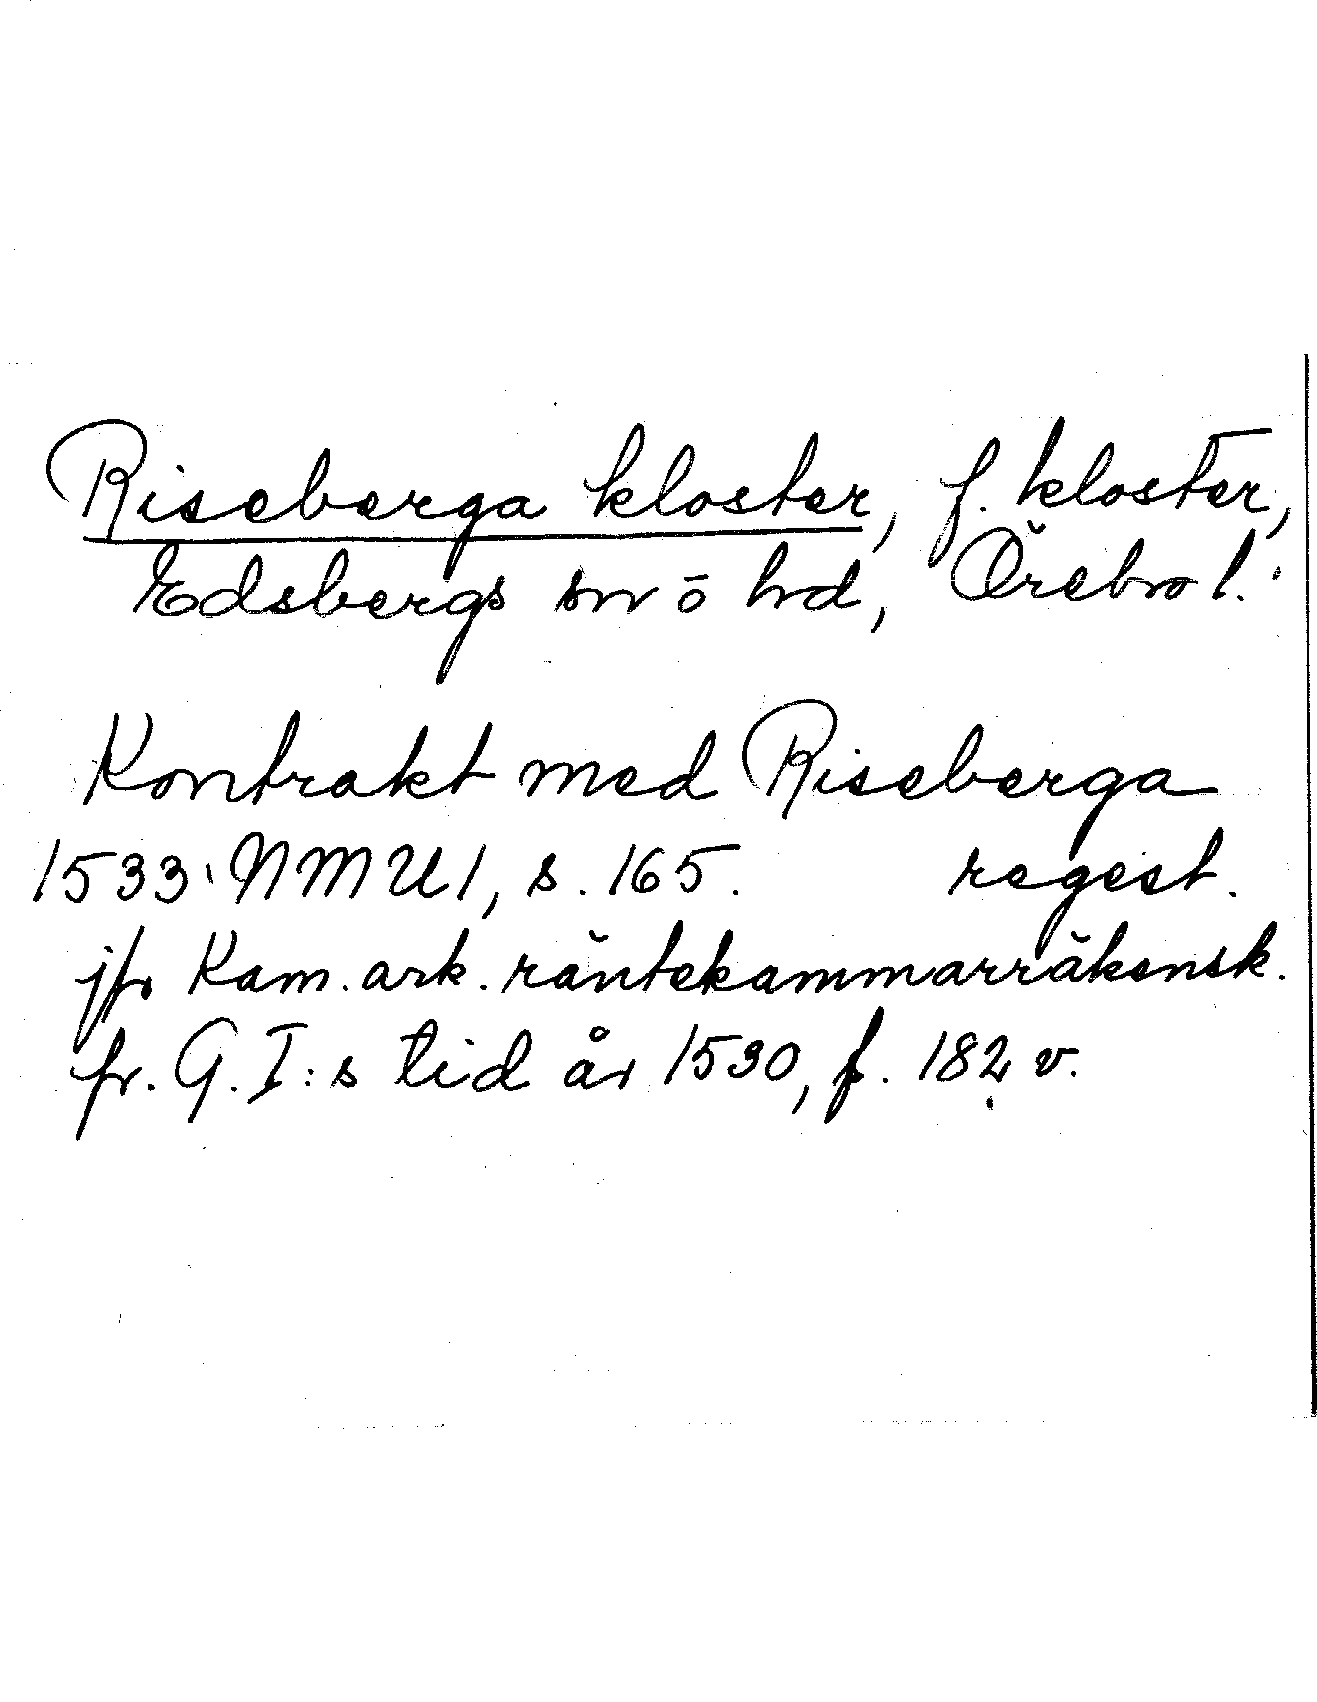 Riseberga kloster, f. kloster,
Edsbergs sn o hd, Örebro l.
Kontrakt med Riseberga
1533 NMU1, s. 165. regest.
jfr Kam. ark. räntekammarräkensk.
fr. G. I:s tid år 1530, f. 182 v.